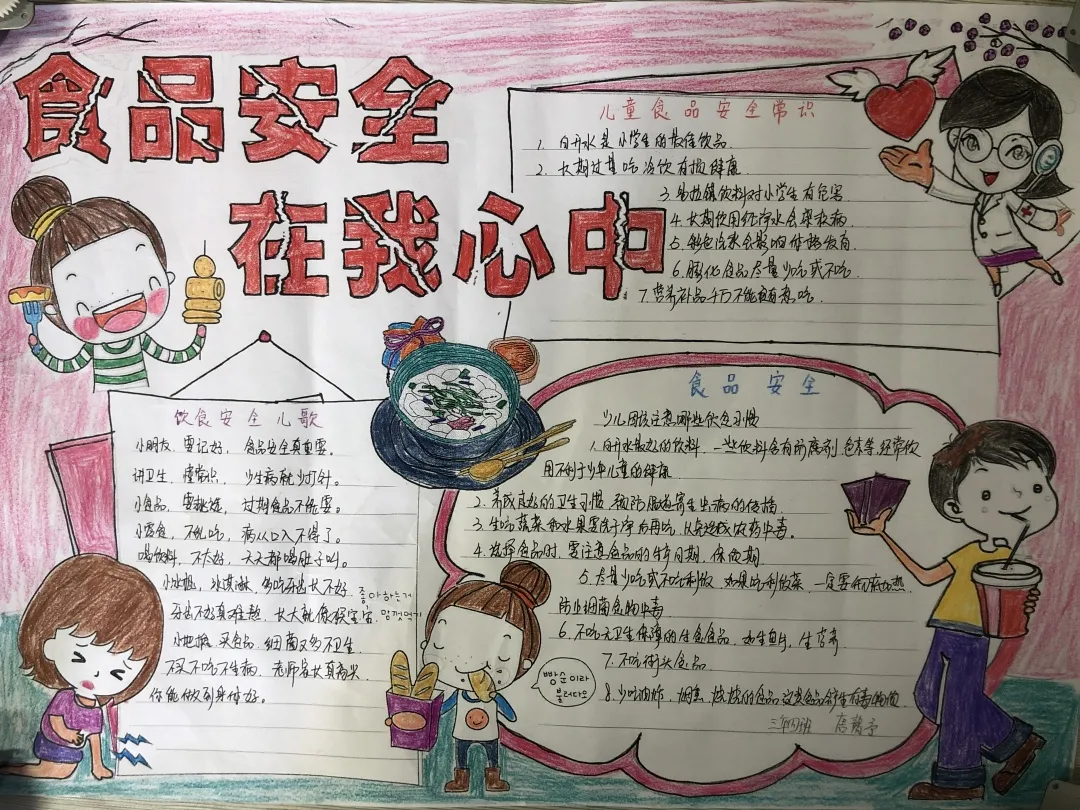 食品安全
在我心中
儿童食品安全常识
1. 白开水是小学生的最佳饮品.
2. 长期过量吃冷饮有损健康.
3. 易拉罐饮料对小学生有危害.
4. 长期饮用纯净水会导致病.
5. 彩色汽水会影响体格发育.
6. 膨化食品尽量少吃或不吃.
7. 营养补品千万不能随意吃.
饮食安全儿歌
小朋友, 要记好, 食品安全真重要。
讲卫生, 懂常识, 少生病就少打针。
小食品, 要挑选, 过期食品不能要。
小零食, 不乱吃, 病从口入不得了。
喝饮料, 不大好, 天天都喝肚子叫。
小冰棍, 冰淇淋, 多吃牙齿长不好.
牙齿不好真难熬, 长大就像没宝宝.
小地摊, 买食品, 细菌又多不卫生.
不买不吃不生病, 老师家长真高兴.
你能做到身体好。
좋아하는거
맘껏먹기
食品安全
少儿阅该注意哪些饮食习惯
1. 白开水最好的饮料, 一些饮料含有防腐剂、色素等, 经常饮
用不利于少年儿童的健康
2. 养成良好的卫生习惯, 预防肠道寄生虫病的传播.
3. 生吃蔬菜和水果要洗干净后再吃, 以免造成农药中毒。
4. 选择食品时, 要注意食品的生产日期、保质期.
5. 尽量少吃或不吃剩饭, 如果吃剩饭菜, 一定要彻底加热,
防止细菌食物中毒
6. 不吃无卫生保障的生食食品, 如生鱼片, 生荸荠
7. 不吃街头食品
8. 少吃油炸、烟熏、烧烤的食品, 这类食品会产生有毒物质
빵순이라
불러다오